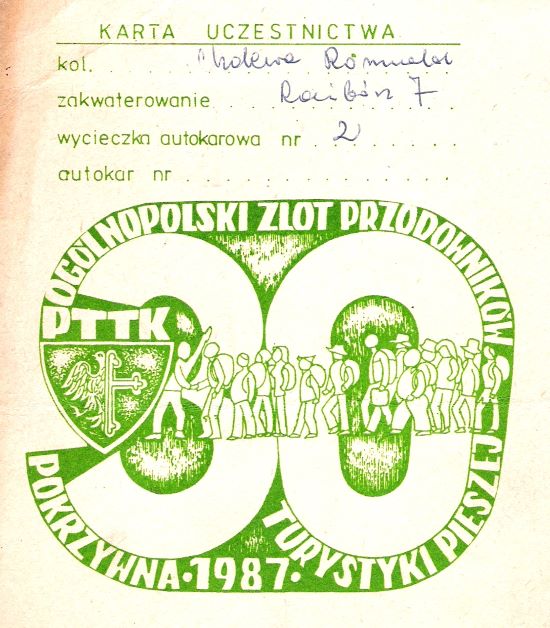 KARTA UCZESTNICTWA
kol. Romuald
zakwaterowanie 7
wycieczka autokarowa nr 2
autokar nr
OGÓLNOPOLSKI ZLOT PRZODOWNIKÓW
TURYSTYKI PIESZEJ
PTTK
30
POKRZYWNA • 1987 •